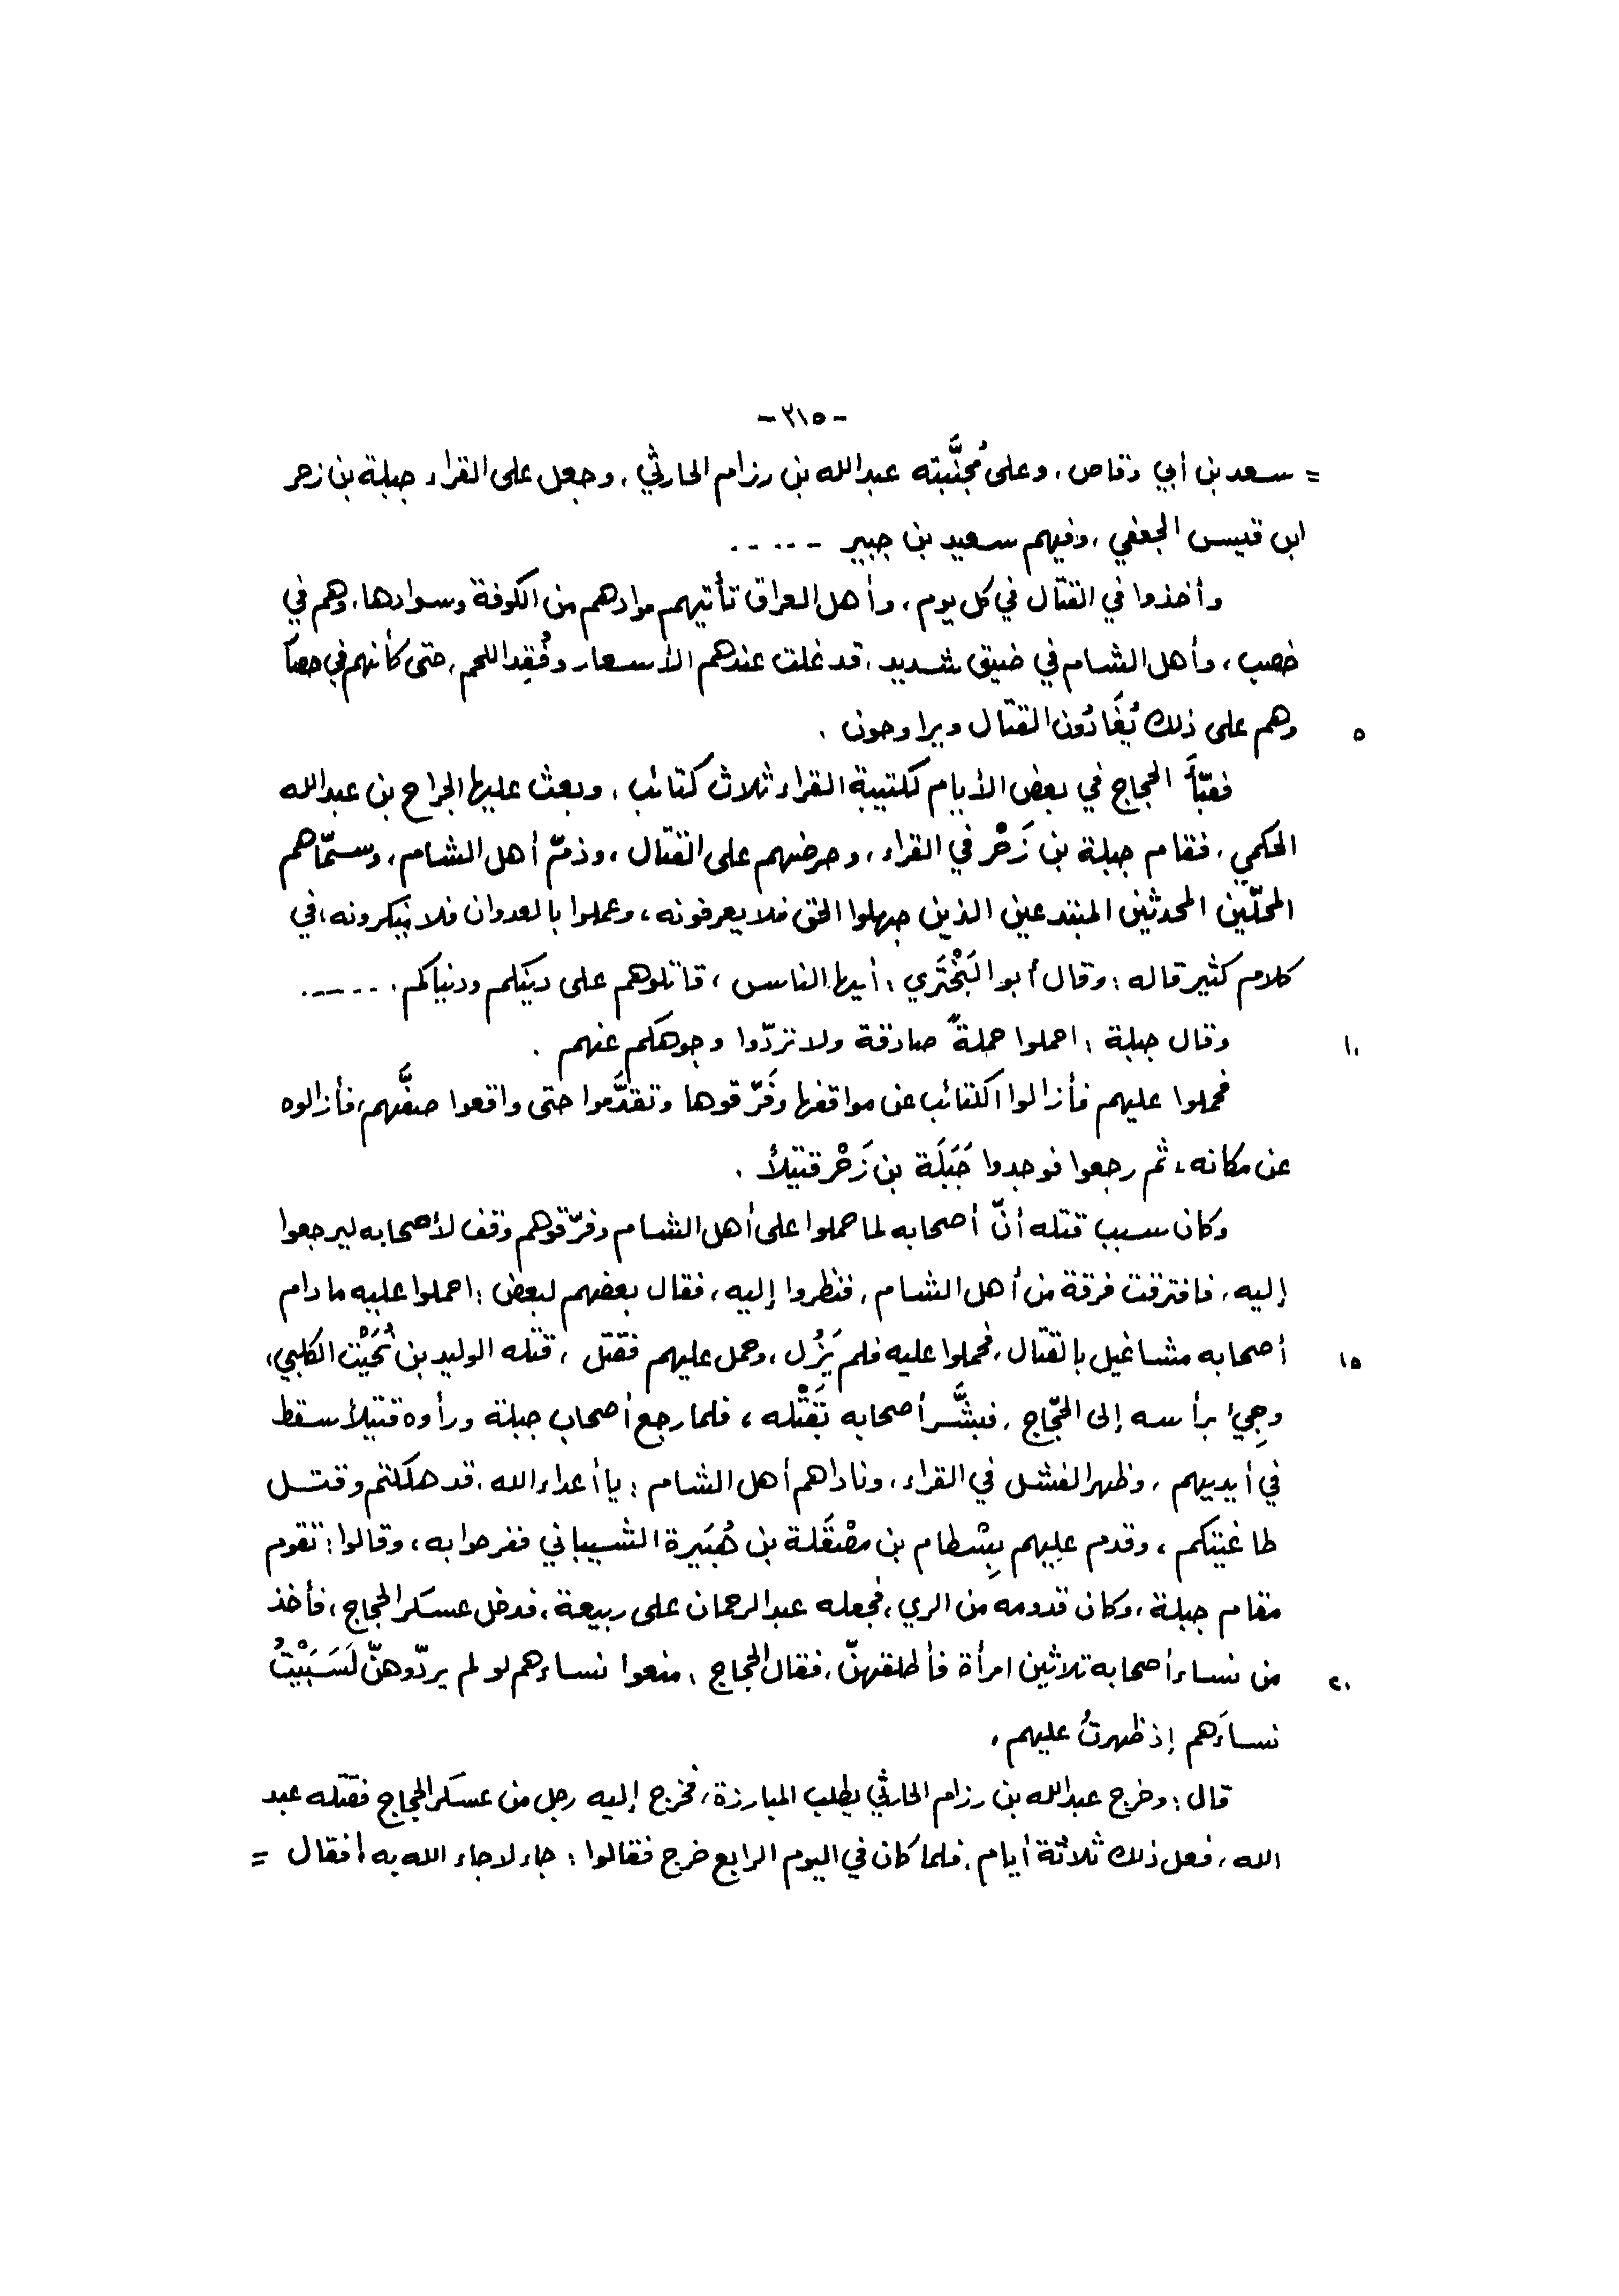 -٢١٥-
= سعد بن أبي وقاص، وعلى مُجنَّبته عبدالله بن رزام الحارثي، وجعل على القراء جبلة بن زحر
ابن قيس الجعفي، وفيهم سعيد بن جبير -----
وأخذوا في القتال في كل يوم، وأهل العراق تأتيهم موادهم من الكوفة وسوادها، وهم في
خصب، وأهل الشام في ضيق شديد، قد غلت عندهم الأسعار وفُقِد اللحم، حتى كأنهم في حصار
٥ وهم على ذلك يُغَادُون القتال ويراوحون.
فعبّأَ الحجاج في بعض الأيام لكتيبة القراء ثلاث كتائب، وبعث عليها الجراح بن عبدالله
الحكمي، فقام جبلة بن زَحْر في القراء، وحرضهم على القتال، وذمّ أهل الشام، وسمّاهم
المحلّين المحدثين المبتدعين الذين جهلوا الحق فلا يعرفونه، وعملوا بالعدوان فلا ينكرونه، في
كلام كثير قاله: وقال أبو البَخْتَري: أيها الناس، قاتلوهم على دينكم ودنياكم. -----
١٠ وقال جبلة: احملوا حملةً صادقة ولا تردّوا وجوهكم عنهم.
فحملوا عليهم فأزالوا الكتائب عن مواقفها وفَرّقوها وتقدَّموا حتى واقعوا صفَّهم، فأزالوه
عن مكانه، ثم رجعوا فوجدوا جَبَلَة بن زَحْر قتيلاً.
وكان سبب قتله أنّ أصحابه لما حملوا على أهل الشام وفرّقوهم وقف لأصحابه ليرجعوا
إليه، فافترقت فرقة من أهل الشام، فنظروا إليه، فقال بعضهم لبعض: احملوا عليه ما دام
١٥ أصحابه مشاغيل بالقتال، فحملوا عليه فلم يَزُل، وحمل عليهم فقتل، قتله الوليد بن نُحَيْت الكلبي،
وجِيءُ برأسه إلى الحجّاج، فبشَّر أصحابه بقَتْله، فلما رجع أصحاب جبلة ورأوه قتيلاً سقط
في أيديهم، وظهر الفشل في القراء، وناداهم أهل الشام: يا أعداء الله، قد هلكتم وقتل
طاغيتكم، وقدم عليهم بِسْطام بن مصْقَلة بن هُبَيرة الشيباني ففرحوا به، وقالوا: تقوم
مقام جبلة، وكان قدومه من الري، فجعله عبدالرحمان على ربيعة، فدخل عسكر الحجاج، فأخذ
٢٠ من نساء أصحابه ثلاثين امرأة فأطلقهنّ، فقال الحجاج: منعوا نساءهم لو لم يردّوهنّ لَسَبَيْتُ
نساءَهم إذ ظهرتُ عليهم.
قال: وخرج عبدالله بن رزام الحارثي يطلب المبارزة، فخرج إليه رجل من عسكر الحجاج فقتله عبد
الله، فعل ذلك ثلاثة أيام، فلما كان في اليوم الرابع خرج فقالوا: جاء لا جاء الله به! فقال =